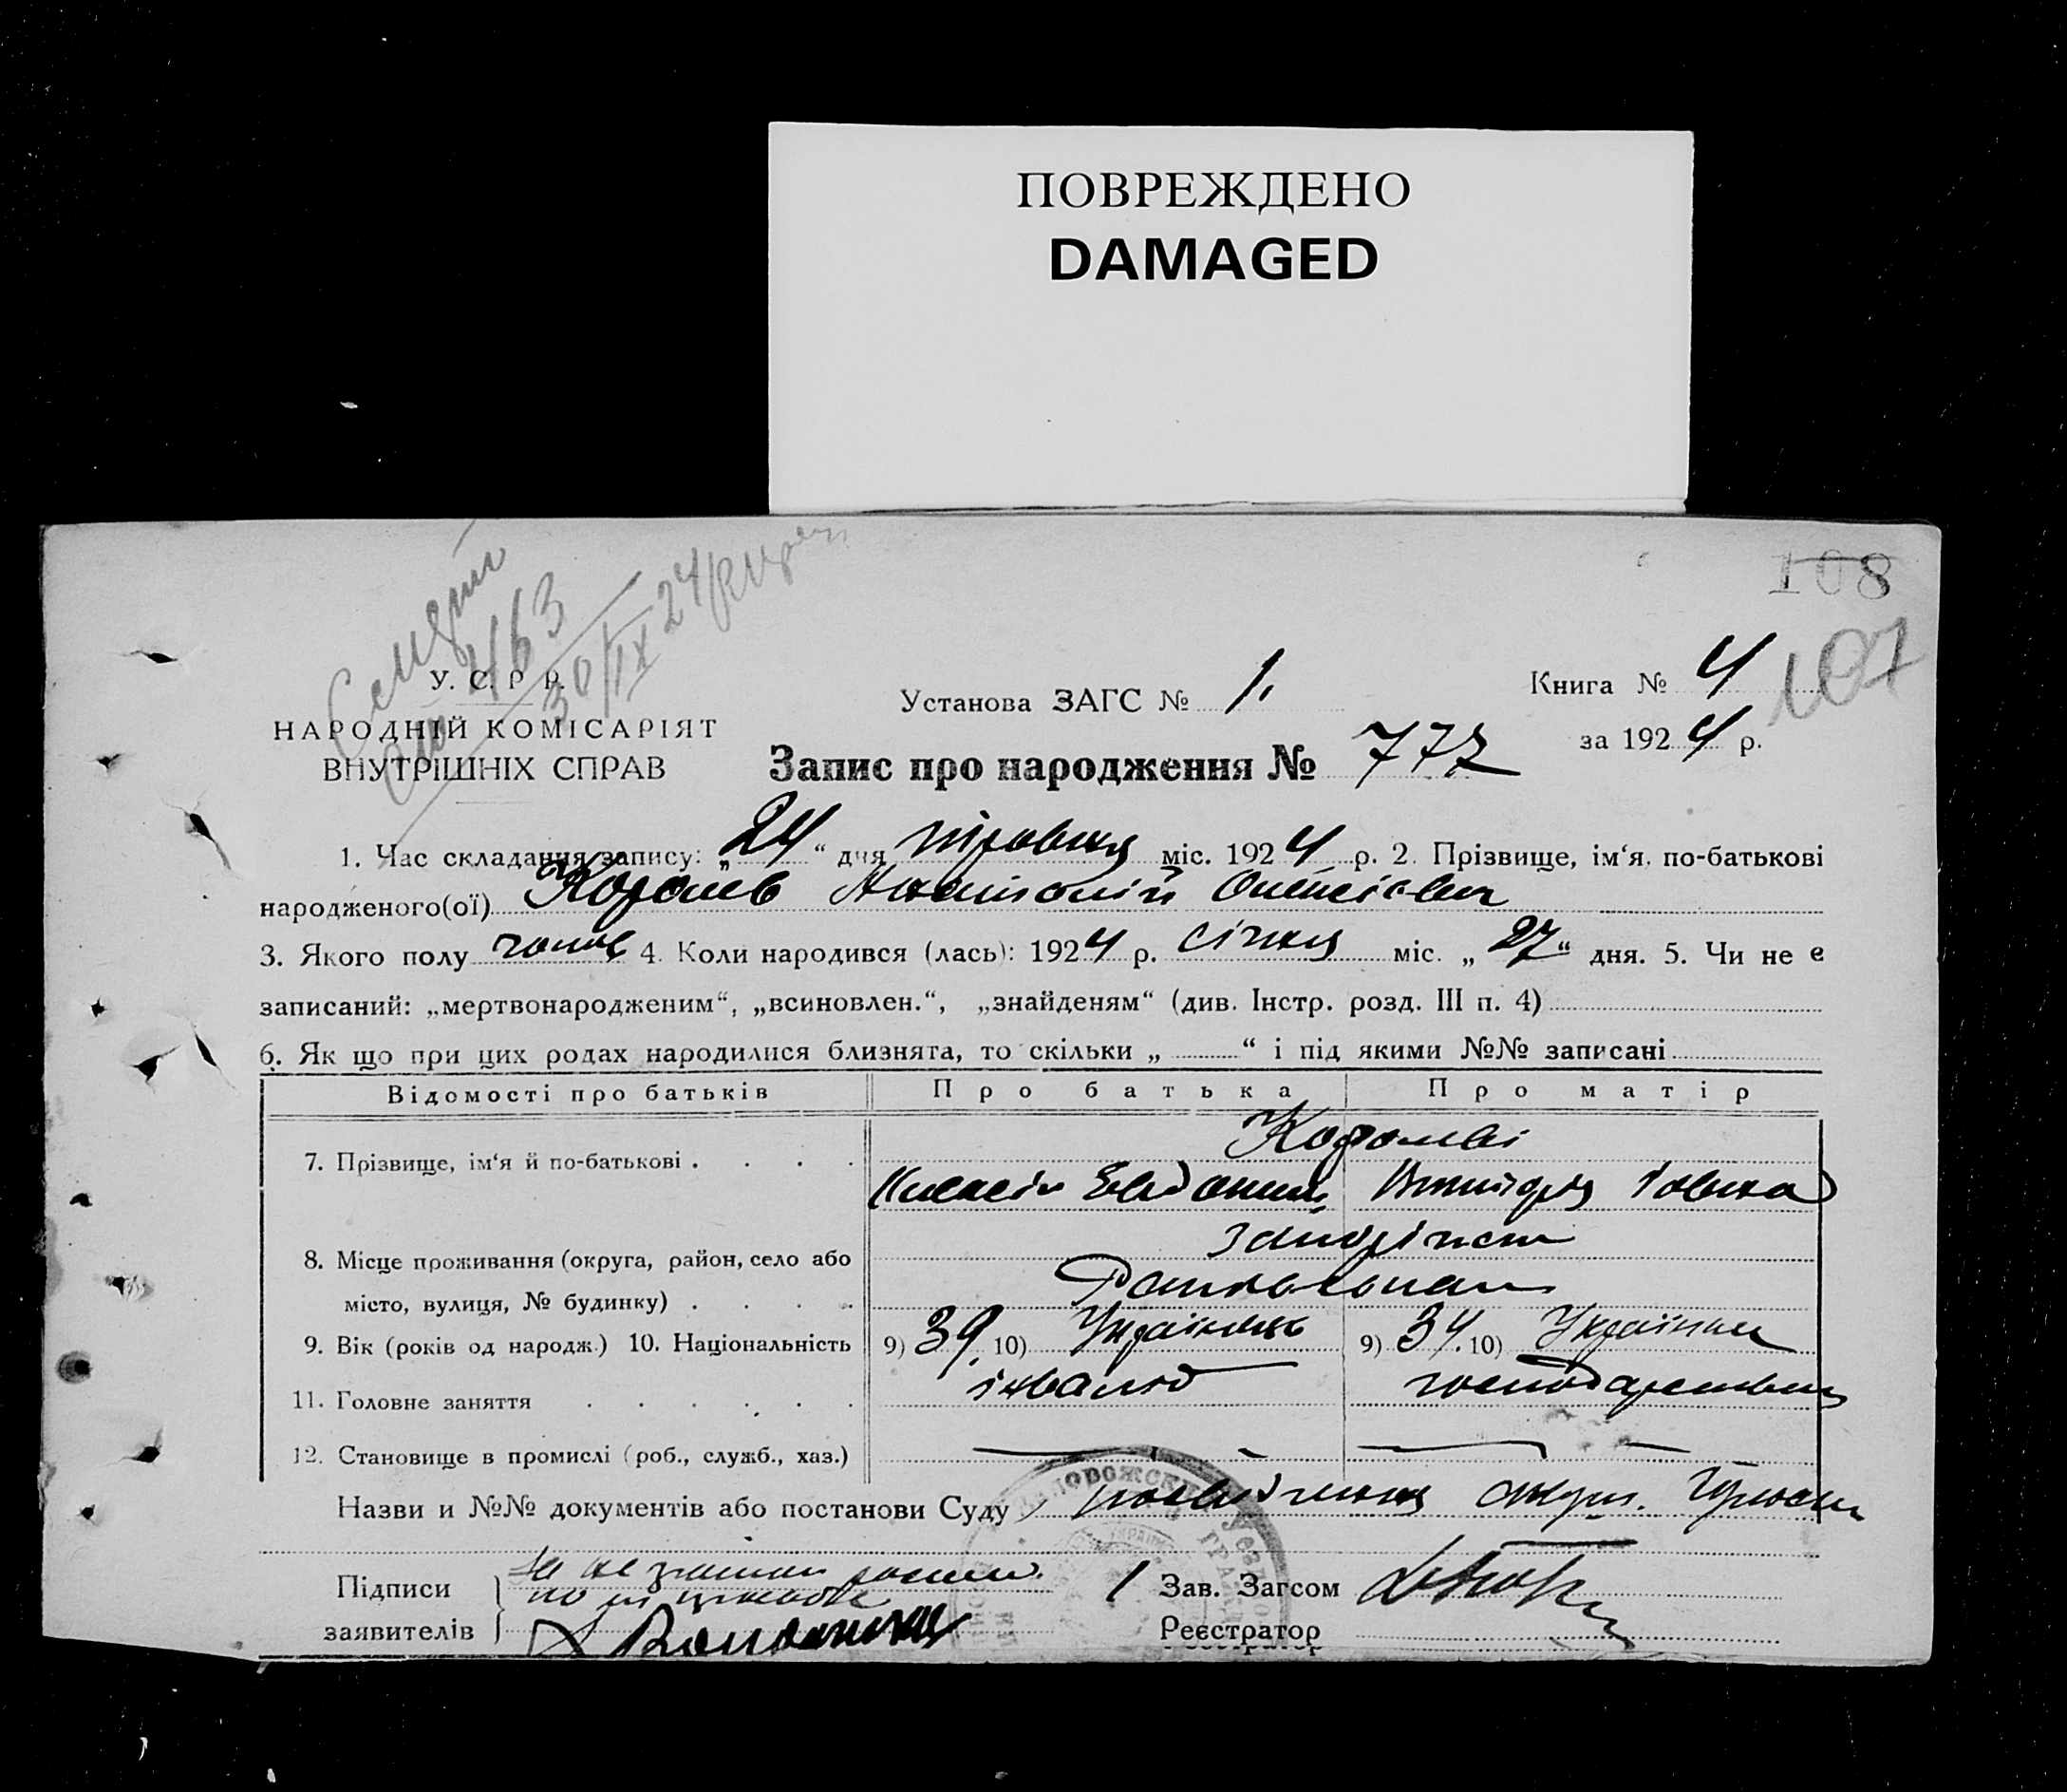 ПОВРЕЖДЕНО
DAMAGED
108
107
463
30/IX 24
У. С. Р Р.
НАРОДНІЙ КОМІСАРІЯТ
ВНУТРІШНІХ СПРАВ
Установа ЗАГС № 1.
Книга № 4
за 1924 р.
Запис про народження № 772
1. Час складання запису: „24“ дня травня міс. 1924 р. 2. Прізвище, ім‘я, по-батькові
народженого(ої) Королів Анатолій Олексієвич
3. Якого полу чолов 4. Коли народився (лась): 1924 р. січня міс. „27“ дня. 5. Чи не є
записаний: „мертвонародженим“, „всиновлен.“, „знайденям“ (див. Інстр. розд. III п. 4)
6. Як що при цих родах народилися близнята, то скільки „ “ і під якими №№ записані
Відомості про батьків Про батька Про матір
7. Прізвище, ім‘я й по-батькові . . . . Королеві
8. Місце проживання (округа, район, село або
місто, вулиця, № будинку) . . . .
9. Вік (років од народж.) 10. Національність 9) 39. 10) Українець 9) 34. 10) Українка
11. Головне заняття . . . . . . інвалід господарствен
12. Становище в промислі (роб., служб., хаз.)
Назви и №№ документів або постанови Суду
Підписи
заявителів
Зав. Загсом
Реєстратор